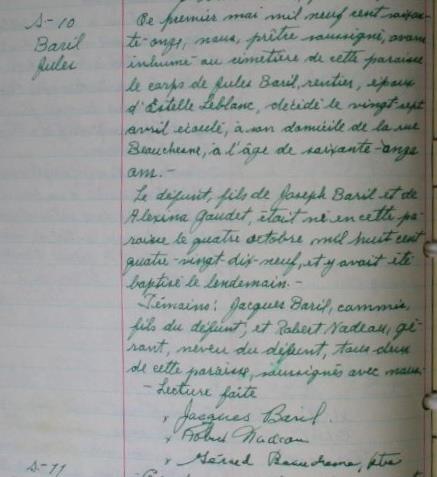 S-10
Baril
Jules
Ce premier mai mil neuf cent soixan-
te-onze, nous, prêtre soussigné, avons
inhumé au cimetière de cette paroisse
le corps de Jules Baril, rentier, époux
d'Estelle Leblanc, décédé le vingt-sept
avril écoulé, à son domicile de la rue
Beauchesne, à l'âge de soixante-onze
ans.-
Le défunt, fils de Joseph Baril et de
Alexina Gaudet, était né en cette pa-
roisse le quatre octobre mil huit cent
quatre-vingt-dix-neuf, et y avait été
baptisé le lendemain.-
Témoins: Jacques Baril, commis,
fils du défunt, et Robert Nadeau, gé-
rant, neveu du défunt, tous deux
de cette paroisse, soussignés avec nous.-
- Lecture faite
x Jacques Baril.
x Robert Nadeau
x Gérard ptre
S-11